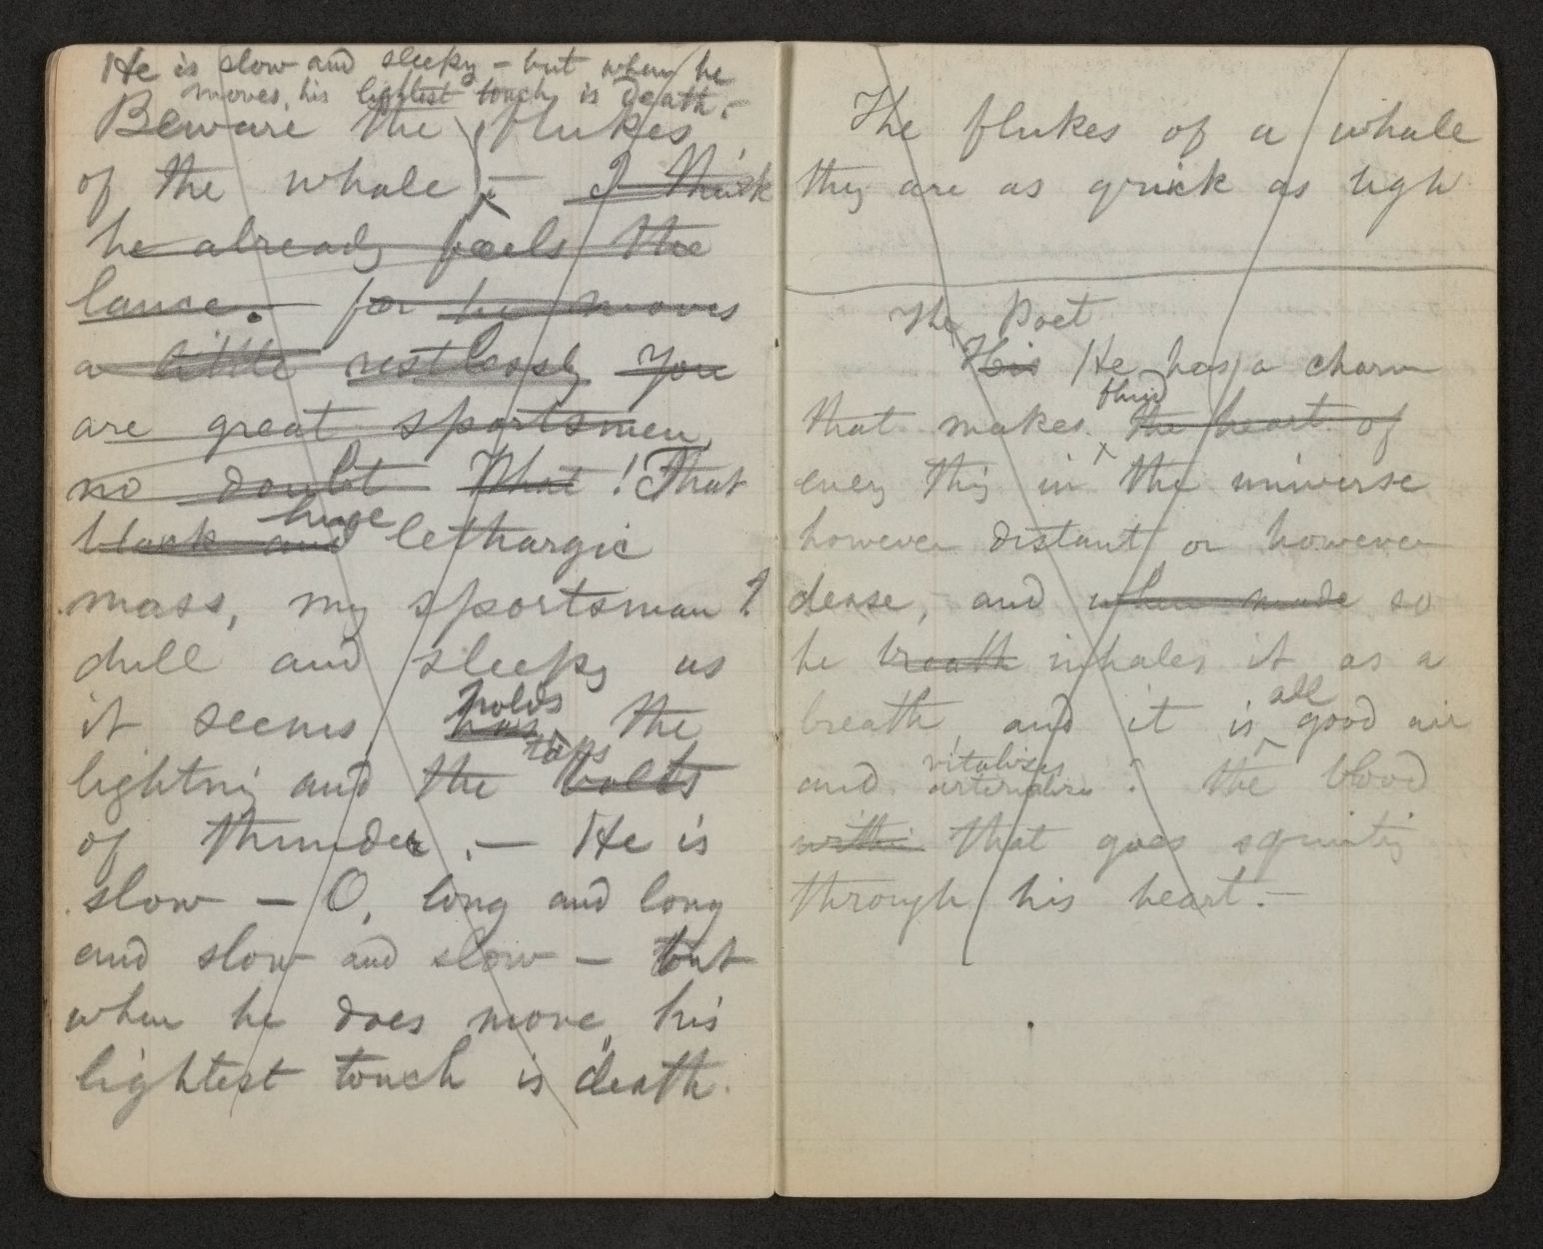 He is slow and sleepy – but when he
moves, his lightest touch is death.–
Beware the flukes
of the whale. – I think
he already feels the
lance. – for he moves
a little restlessly You
are great sportsmen,
no doubt What ! That
huge
black and lethargic
mass, my sportsman
dull and sleepy as
holds
it seems has the
taps
lightning and the bolts
of thunder. – He is
slow – O, long and long
and slow and slow – but
when he does move, his
lightest touch is death.
The flukes of a whale
they are as quick as ligh
The Poet
His He has a charm
fluid
that makes the heart of
every thing in the universe
however distant or however
dense, and when made so
he breath inhales it as a
all
breath, and it is good air
vitalizes
and arterialize : the blood
within that goes squirting
through his heart.–